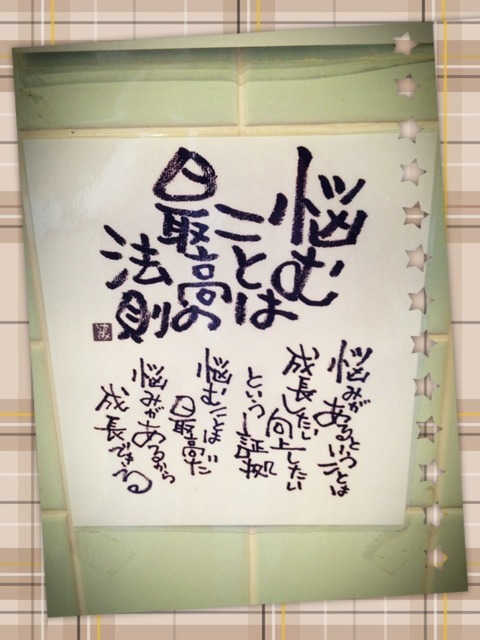 悩む
ことは
最高の
法則
悩みがあるということは
成長したい
向上したい
という証拠
悩むことは
最高だ
悩みがあるから
成長できる